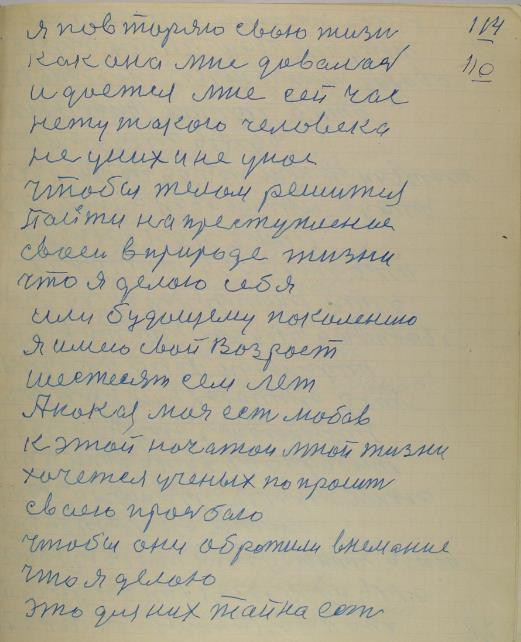 я повторяю свою жизн 114
как она мне довалас 110
и дается мне сей час
нету такого человека
не уних и не унас
чтобы телом решится
Пойти на преступление
своеи в природе жизни
что я делаю себя
или будощему поколению
я имею свой возрост
шестесят сем лет
А кокая моя ест любов
к этой начатои мной жизни
хочется ученых попросит
своею просбаю
чтобы они обротили внемание
что я делаю
это для них тайна